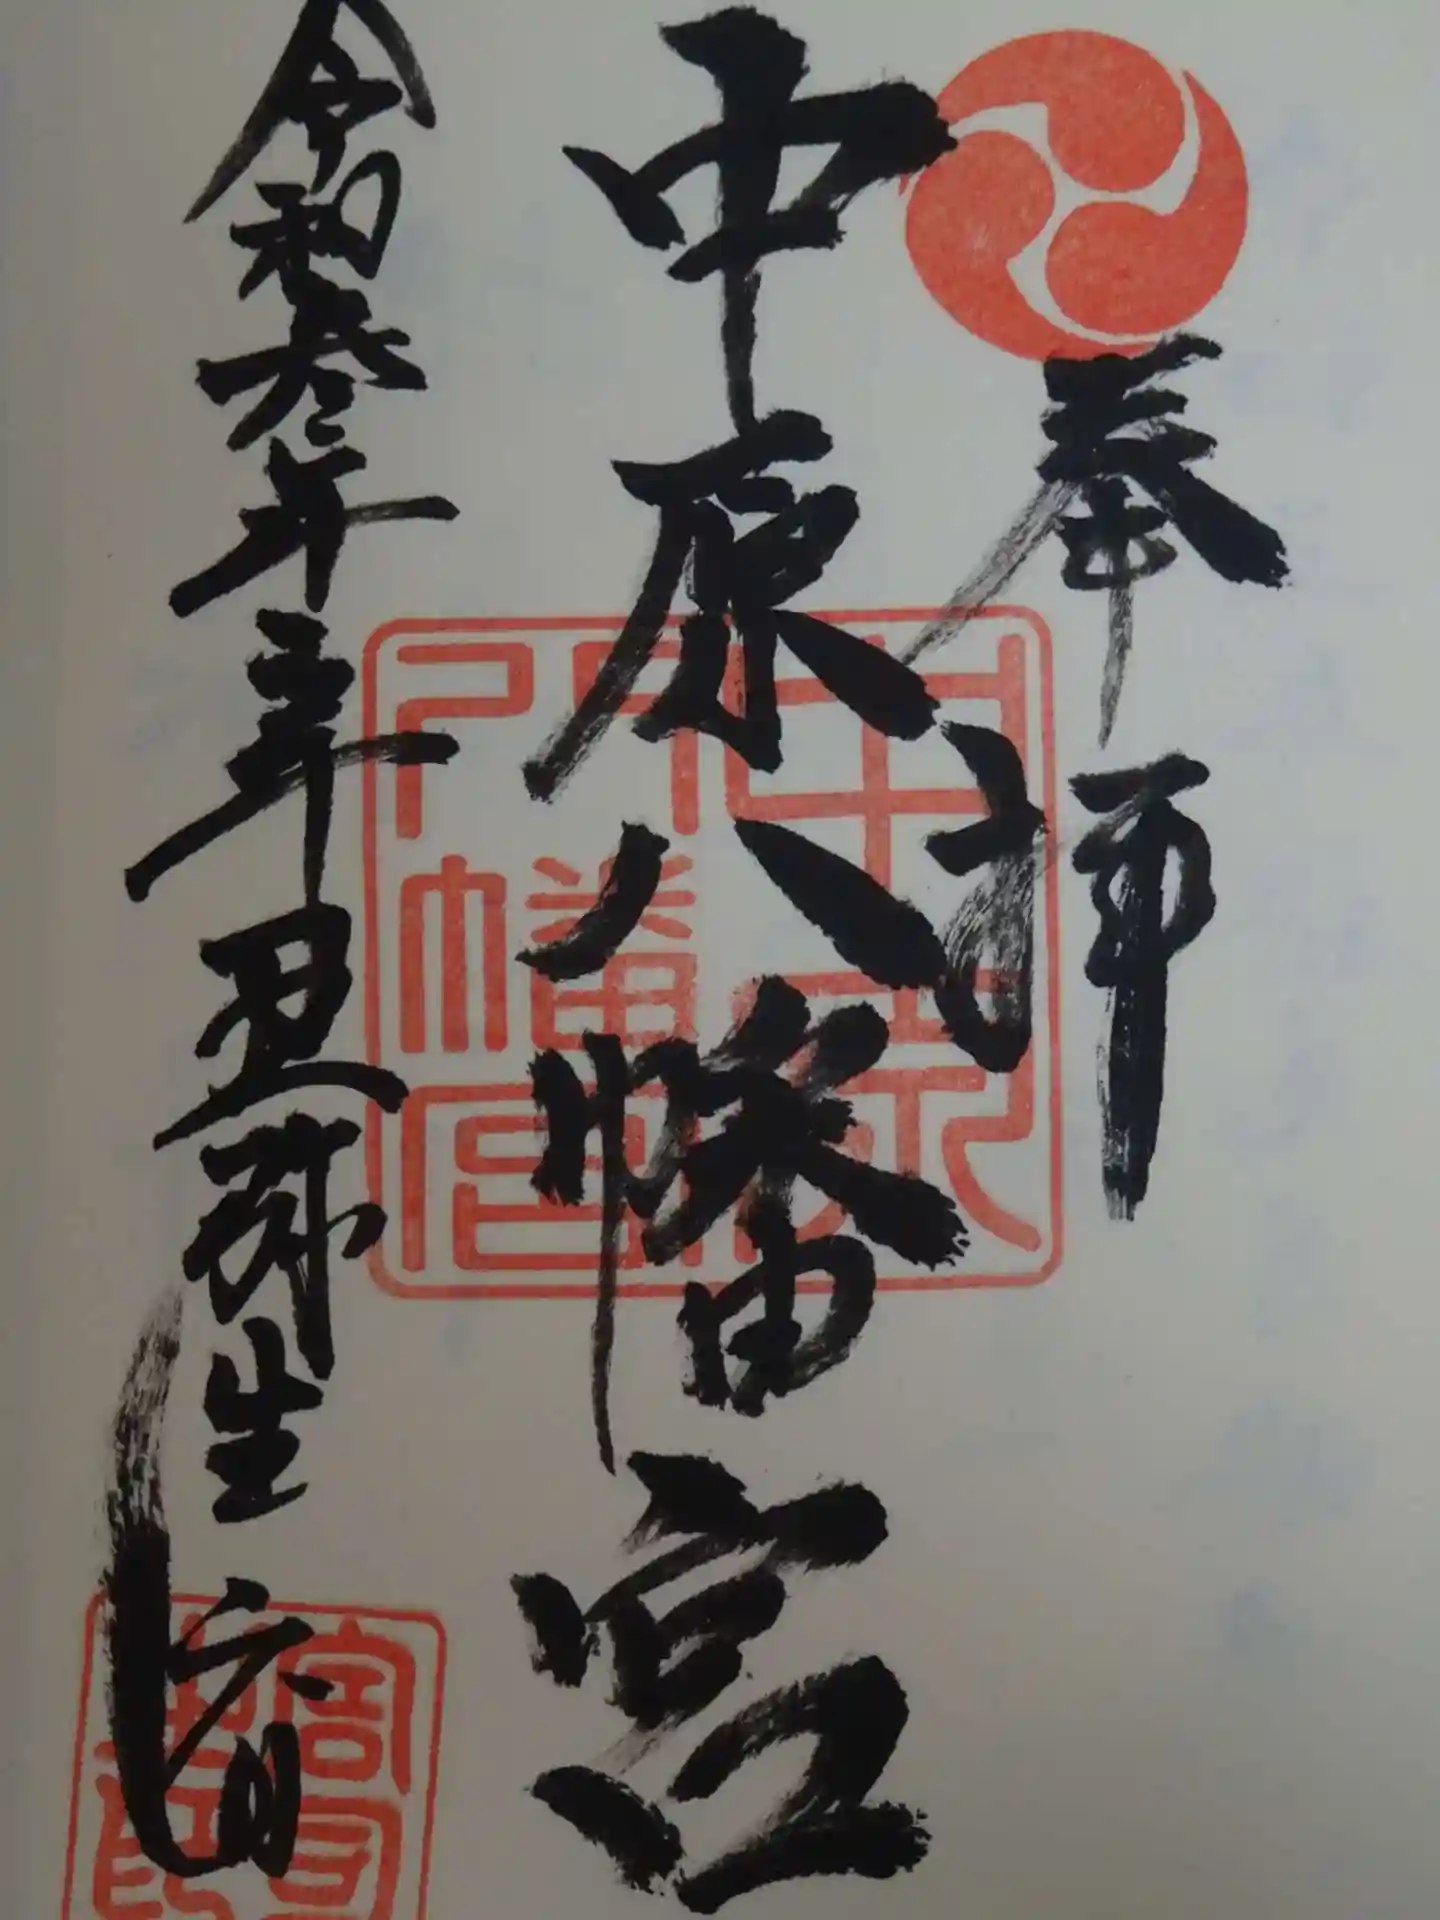 奉拝
中原八幡宮
令和参年辛丑弥生六日
中原八幡宮
宮司之印